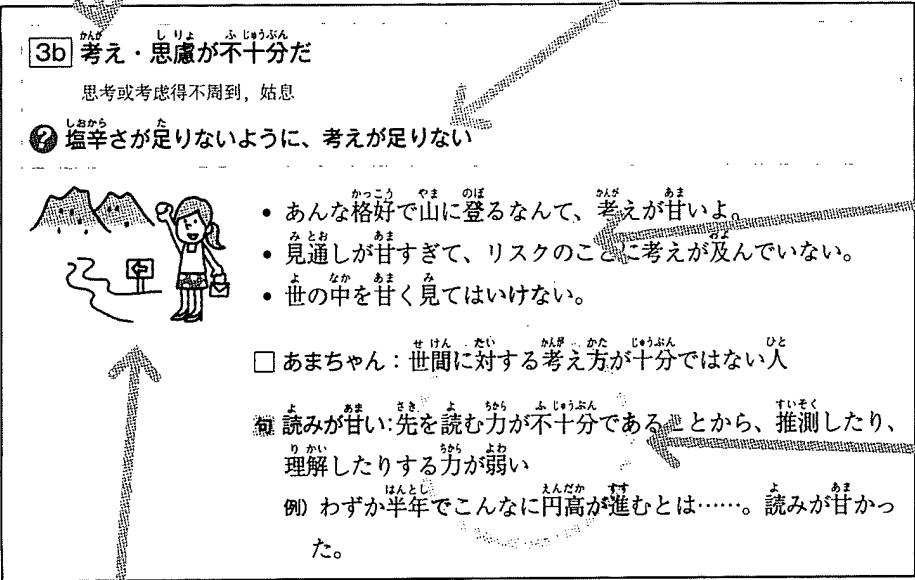 3b 考え・思慮が不十分だ
思考或考虑得不周到，姑息
? 塩辛さが足りないように、考えが足りない
• あんな格好で山に登るなんて、考えが甘いよ。
• 見通しが甘すぎて、リスクのことに考えが及んでいない。
• 世の中を甘く見てはいけない。
□ あまちゃん：世間に対する考え方が十分ではない人
句 読みが甘い：先を読む力が不十分であることから、推測したり、
理解したりする力が弱い
例）わずか半年でこんなに円高が進むとは……。読みが甘かっ
た。